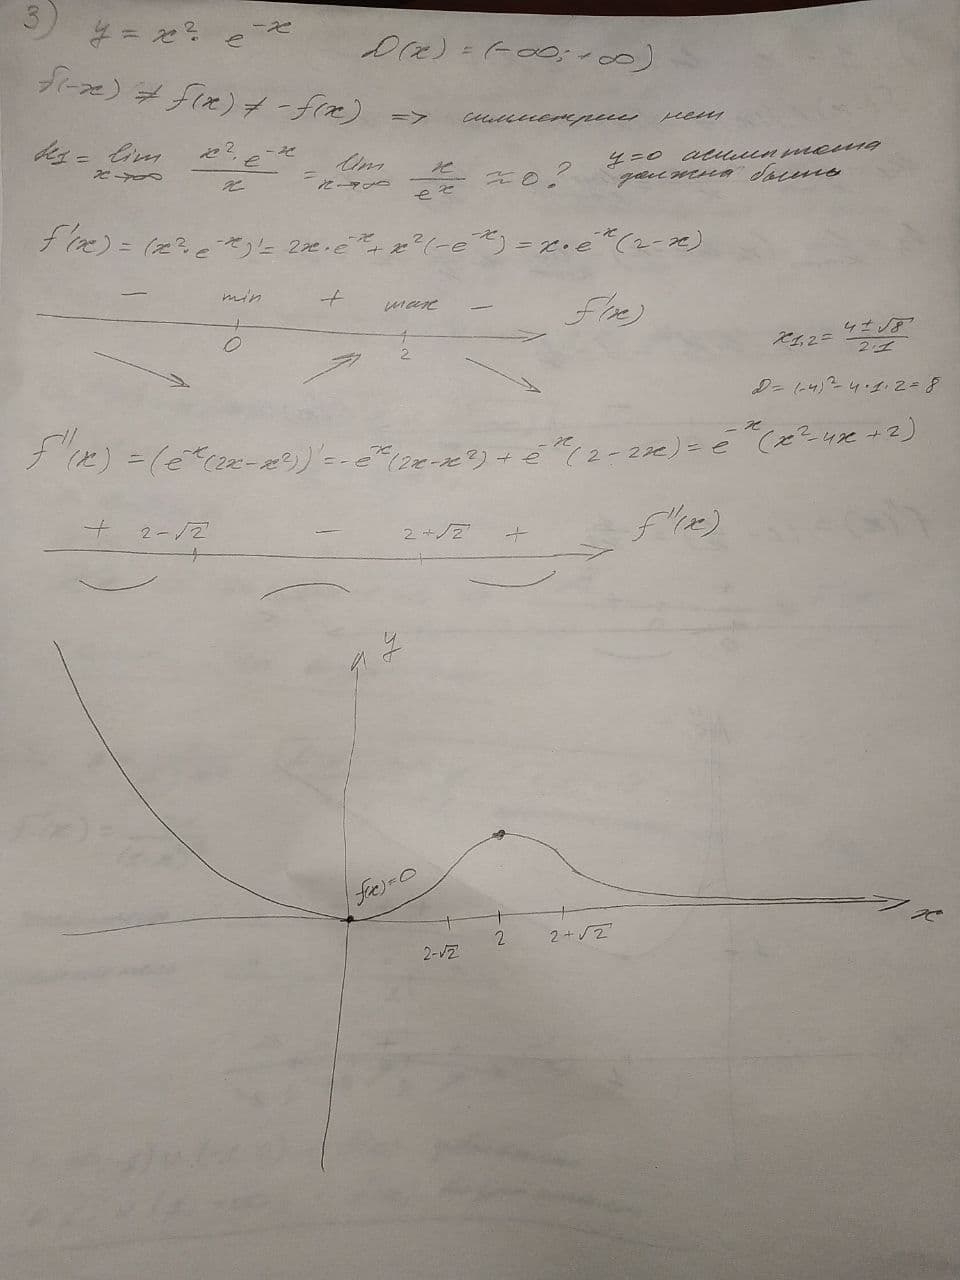 3) y = x² · e^-x D(x) = (-∞; +∞)
f(-x) ≠ f(x) ≠ -f(x) => симметрии нет
k1 = lim x→∞ x²·e^-x / x = lim x→∞ x / e^x ≈ 0? y=0 асимптота должна быть
f'(x) = (x²·e^-x)' = 2x·e^-x + x²(-e^-x) = x·e^-x(2-x)
- min + max - f'(x)
0 2
x1,2 = 4±√8 / 2·1
D = (-4)²-4·1·2 = 8
f''(x) = (e^-x(2x-x²))' = -e^-x(2x-x²) + e^-x(2-2x) = e^-x(x²-4x+2)
+ 2-√2 - 2+√2 + f''(x)
y
f(x)=0
x
2-√2 2 2+√2